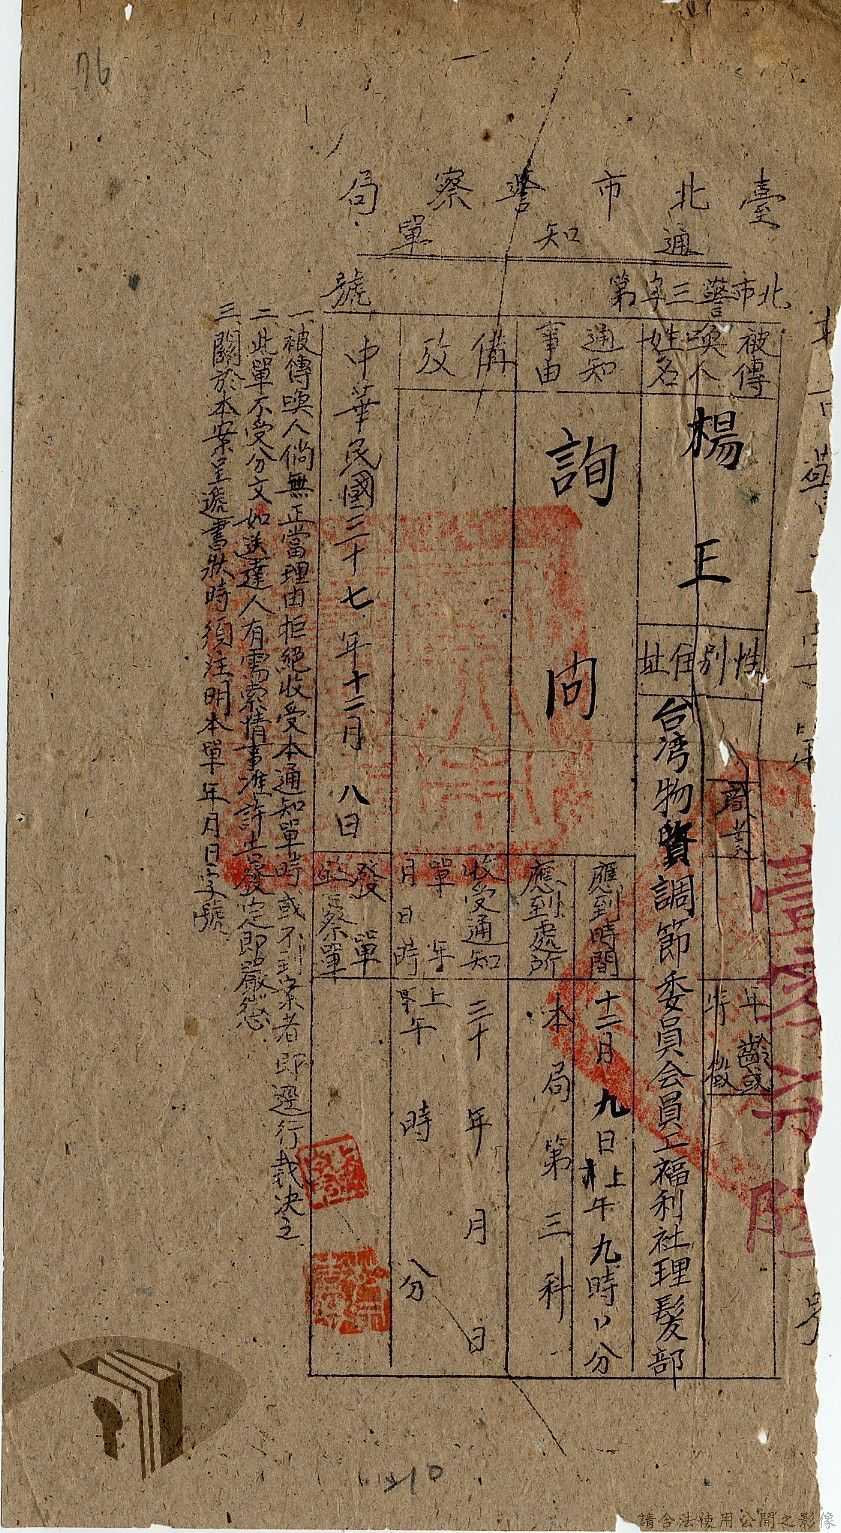 76
臺北市警察局
通知單
北市警三字第 號
被傳喚人姓名
楊王
性別住址
台湾物資調節委員会員工福利社理髮部
職業
年齡或特徵
通知事由
詢問
應到時間
十二月九日上午九時 分
應到處所
本局第三科
備攷
收受通知單年月日時
三十 年 月 日
上午 時 分
中華民國三十七年十二月八日
發單
一、被傳喚人倘無正當理由拒絕收受本通知單時或不到案者即逕行裁決之
二、此單不受分文如送達人有需索情事准許告發定即嚴懲
三、關於本案呈遞書狀時須注明本單年月日字號
壹零分陸
號
210
請合法使用公開之影像